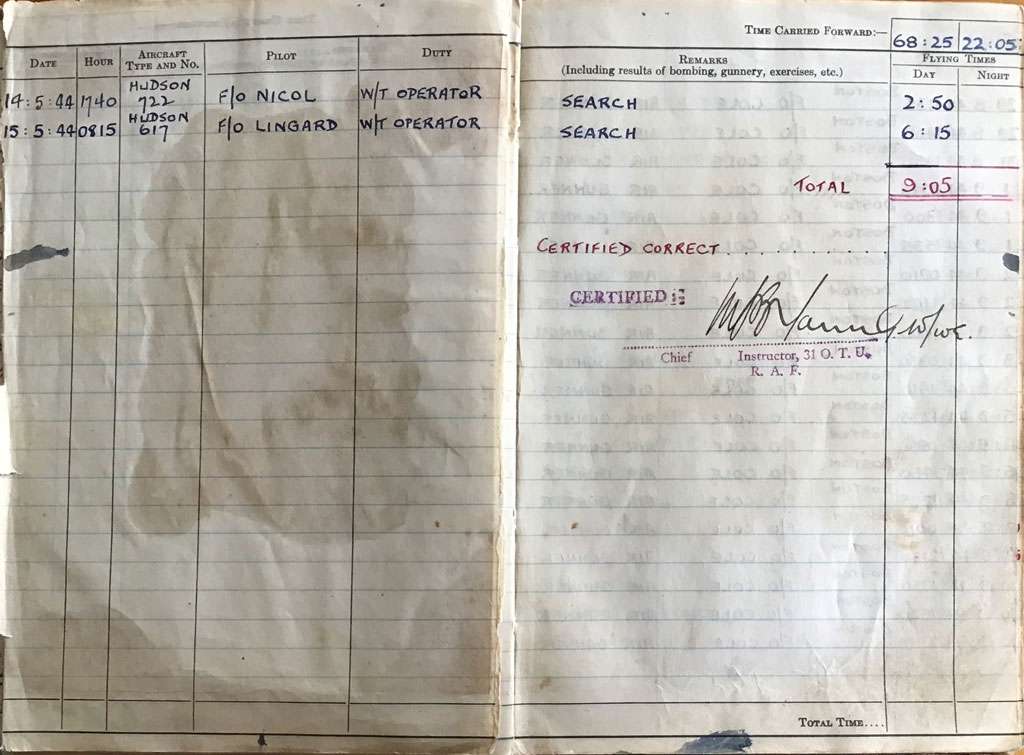 DATE HOUR AIRCRAFT TYPE AND NO. PILOT DUTY
14:5:44 1740 HUDSON 722 F/O NICOL W/T OPERATOR
15:5:44 0815 HUDSON 617 F/O LINGARD W/T OPERATOR
TIME CARRIED FORWARD:— 68:25 22:05
REMARKS
(Including results of bombing, gunnery, exercises, etc.)
FLYING TIMES
DAY NIGHT
SEARCH 2:50
SEARCH 6:15
TOTAL 9:05
CERTIFIED CORRECT..........
CERTIFIED :
Chief Instructor, 31 O. T. U.
R. A. F.
TOTAL TIME....